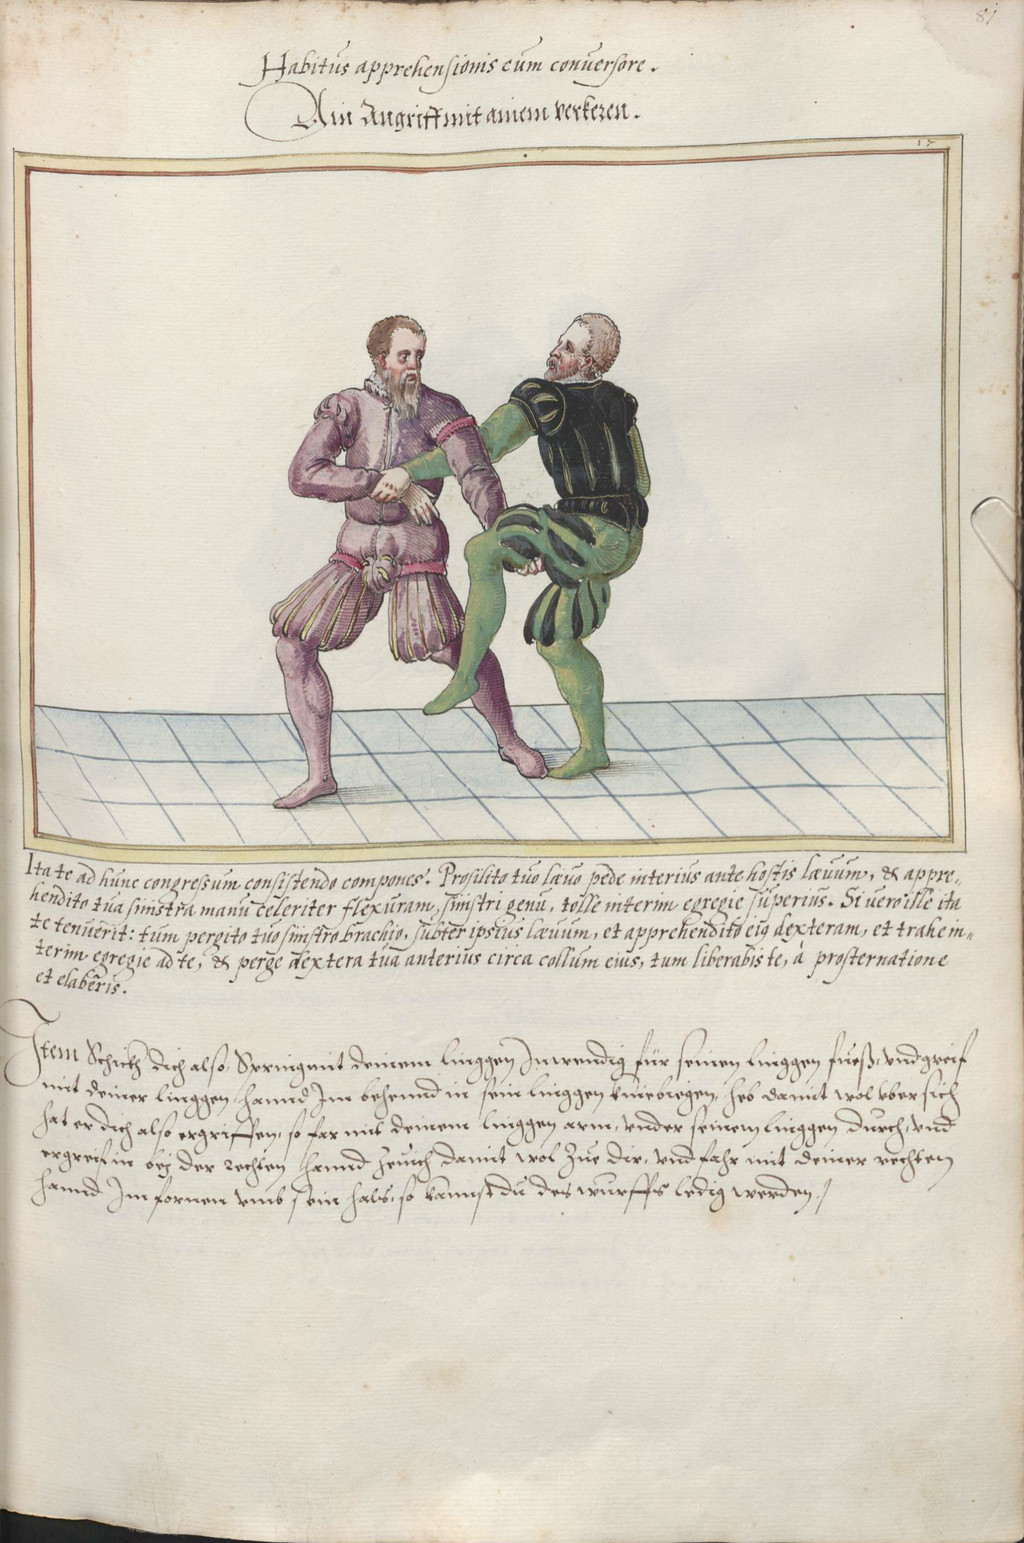 81
Habitus apprehensionis cum conuersore.
Ain Angriff mit ainem verkeren.
17
Ita te ad hunc congressum consistendo compones. Prosilito tuo læuo pede interius ante hostis læuum, & appre-
hendito tua sinistra manu celeriter flexuram, sinistri genu, tolle interim egregie superius. Si uero ille ita
te tenuerit: tum pergito tuo sinistro brachio, subter ipsius læuum, et apprehendito eiq dexteram, et trahe in-
terim egregie ad te, & perge dextera tua anterius circa collum eius, tum liberabis te, à prosternatione
et elaberis.
Item Schickh dich also, Spring mit deinem linggen Inwendig für seinen linggen fueß, vnd greif
mit deiner linggen hannd Im behennd in sein linggen kniebiegen, heb damit wol vber sich
hat er dich also ergriffen, so far mit deinem linggen arm, vnder seinem linggen durch, vnd
ergreif in beÿ der rechten hannd zeuch damit wol zue dir, vnd fahr mit deiner rechten
hannd Im fornen vmb sein hals, so kannst du des wurffs ledig werden.